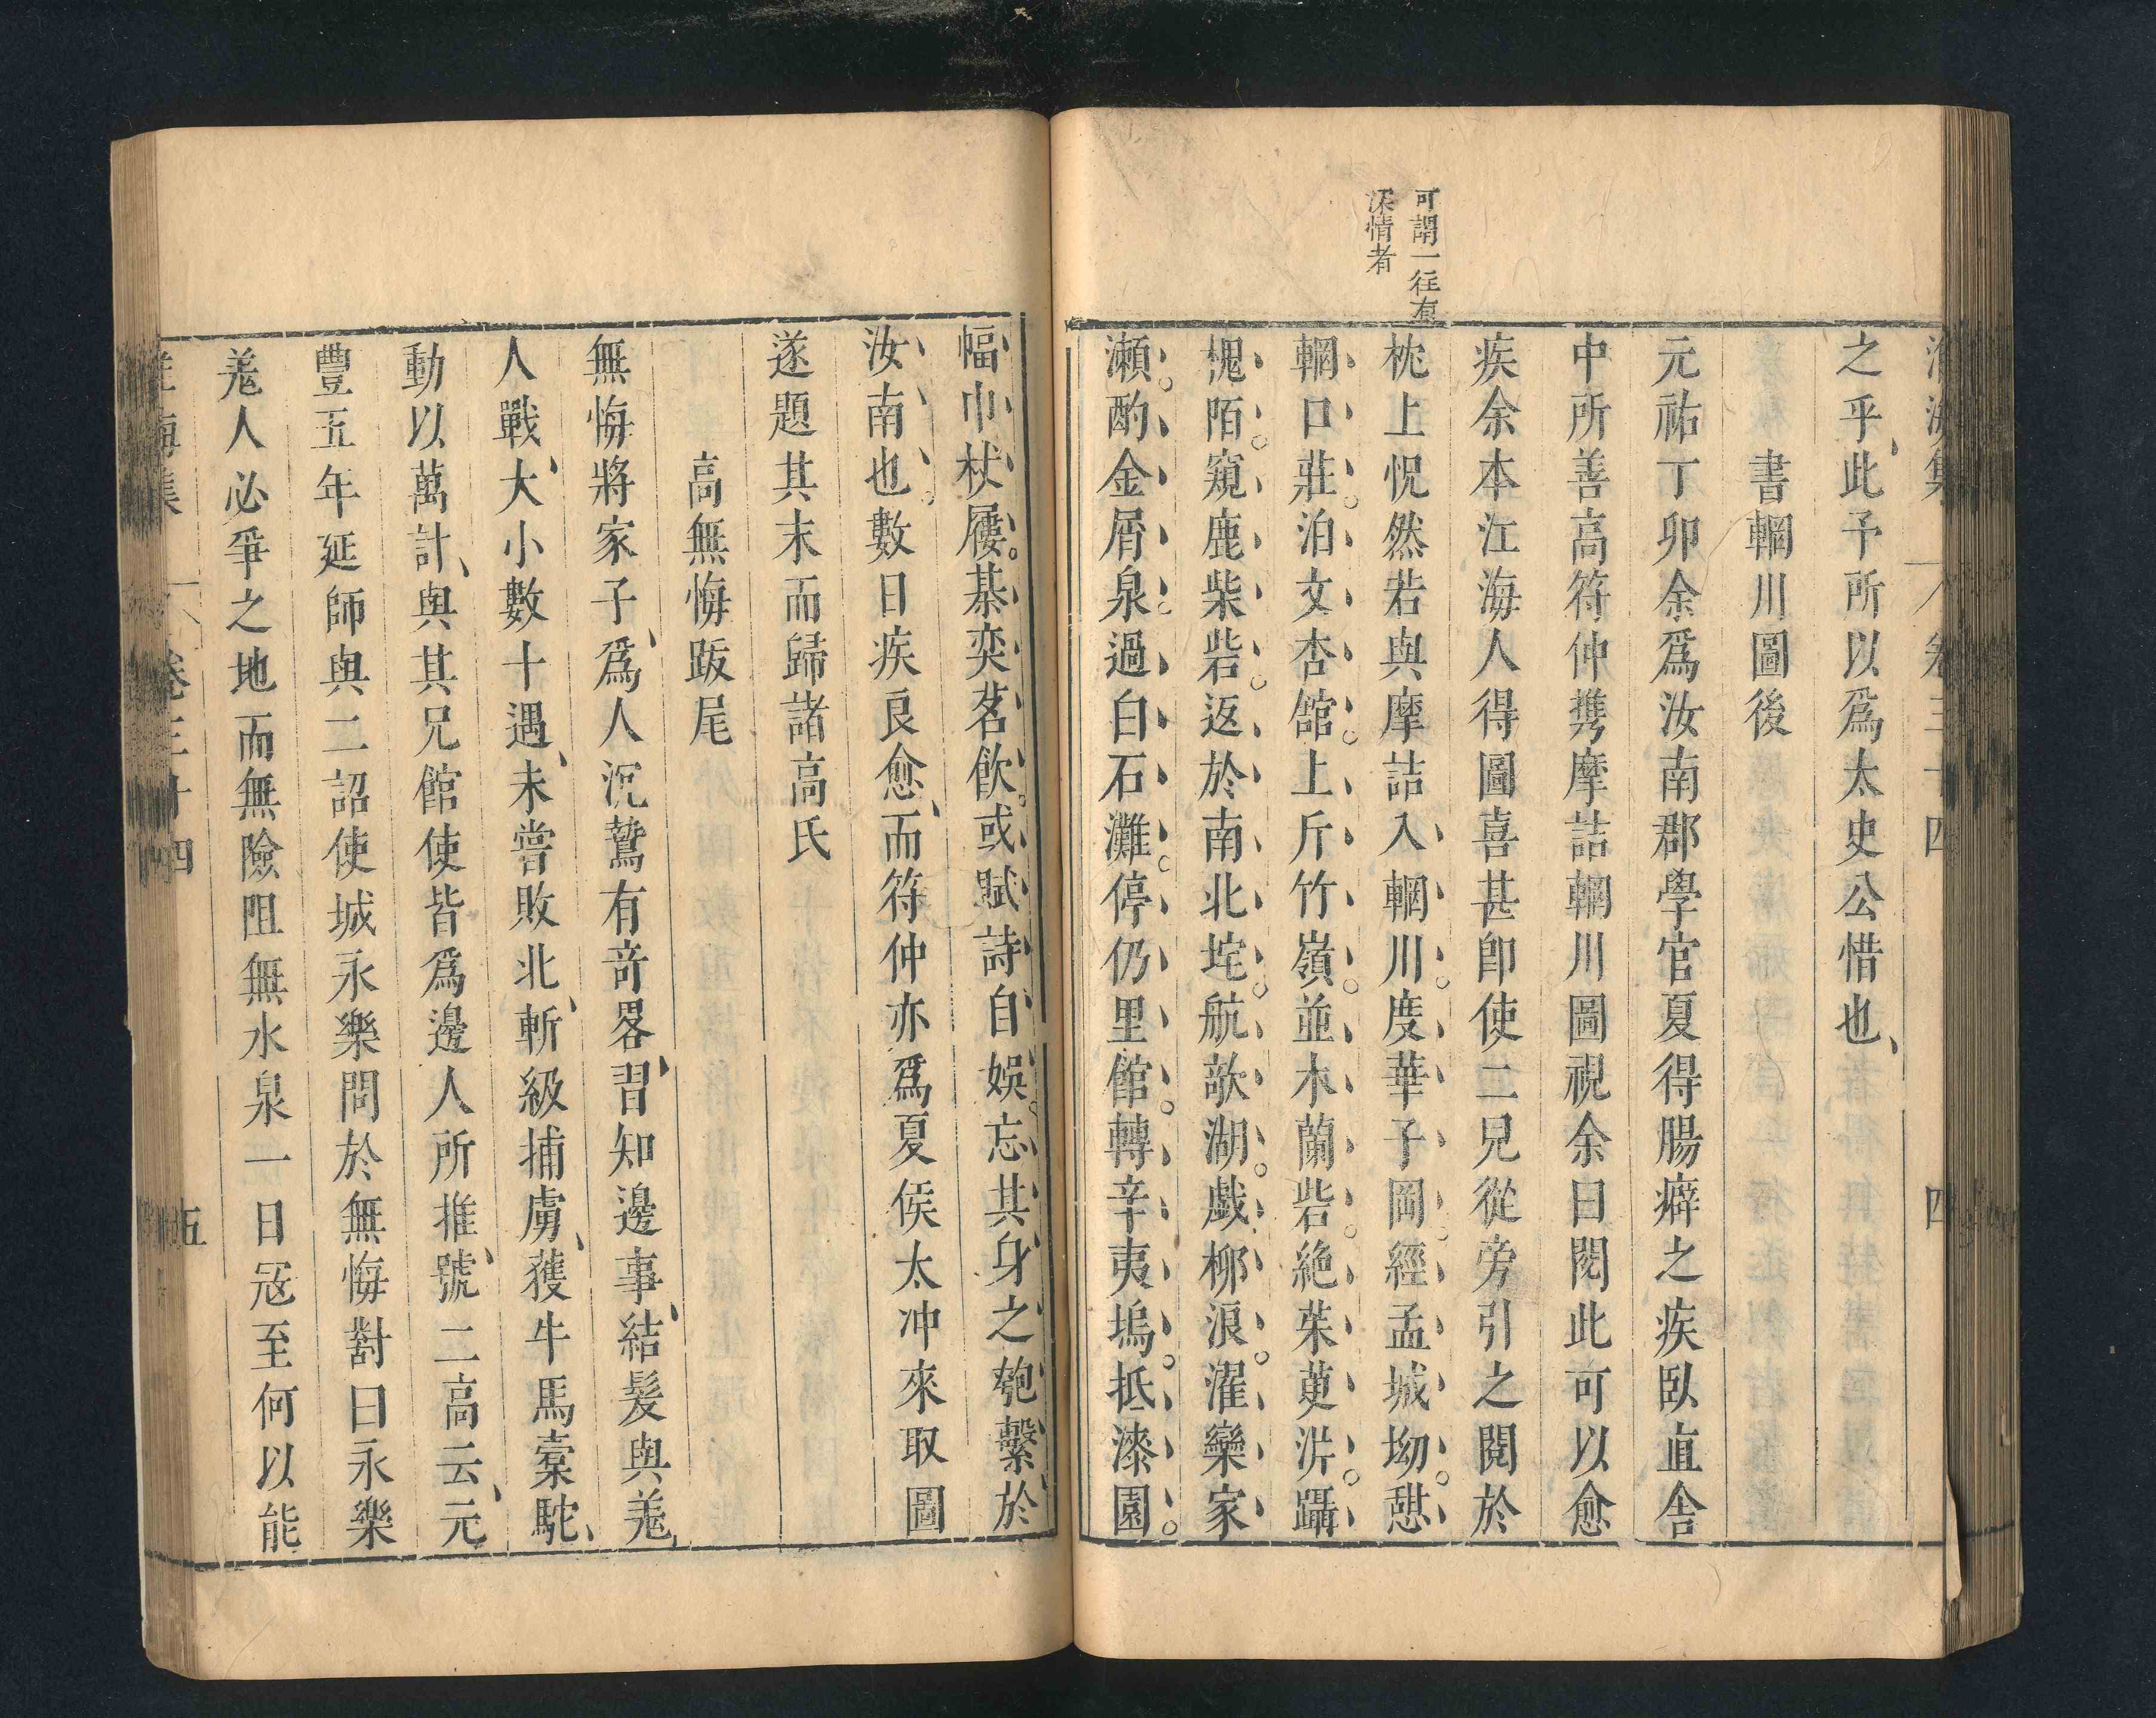 淮海集 卷三十四 四
之乎此予所以爲太史公惜也
書輞川圖後
元祐丁卯余爲汝南郡學官夏得腸癖之疾臥直舍
中所善高符仲攜摩詰輞川圖視余曰閱此可以愈
疾余本江海人得圖喜甚卽使二兒從旁引之閱於
枕上怳然若與摩詰入輞川度華子岡經孟城坳憇
輞口莊泊文杏館上斤竹嶺並木蘭砦絶茱萸沜躡
槐陌窺鹿柴砦返於南北垞航欹湖戯柳浪濯欒家
瀨酌金屑泉過白石灘停仍里館轉辛夷塢抵漆園
可謂一往有
深情者
幅巾杖屨棊奕茗飲或賦詩自娛忘其身之匏繫於
汝南也數日疾良愈而符仲亦爲夏侯太冲來取圖
遂題其末而歸諸高氏
高無悔跋尾
無悔將家子爲人沉鷙有奇畧習知邊事結髮與羗
人戰大小數十遇未嘗敗北斬級捕虜獲牛馬槖駝
動以萬計與其兄館使皆爲邊人所推號二高云元
豐五年延師與二詔使城永樂問於無悔對曰永樂
羗人必爭之地而無險阻無水泉一日冦至何以能
淮海集 卷三十四 五